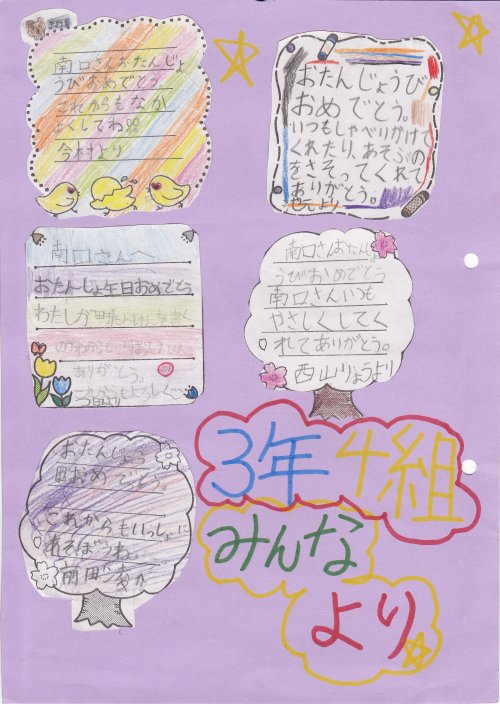 南口さんおたんじょ
うびおめでとう
これからもなか
よくしてね
今村より
おたんじょうび
おめでとう。
いつもしゃべりかけて
くれたり、あそぶの
をさそってくれて
ありがとう。
より
南口さんへ
おたんじょ生日おめでとう
わたしが
ありがとう。
これからもよろしく〜
より
南口さんおたんじょ
うびおめでとう
南口さんいつも
やさしくしてく
れてありがとう。
西山りょうより
おたんじょう
日おめでとう。
これからもいっしょに
あそぼうね。
前田
3年4組
みんな
より